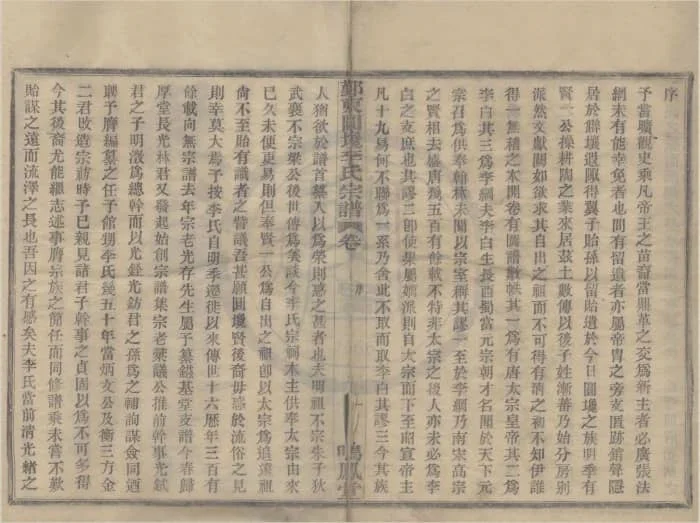 序
予嘗曠觀史乘凡帝王之苗裔當鼎革之交爲新主者必廣張法
網未有能幸免者也間有留遺者亦屬帝胄之旁支匿跡銷聲隱
居於僻壤遐陬得翼子貽孫以留貽遺於今日圓墩之族明季有
賢一公操耕陶之業來居茲土數傳以後子姓漸蕃乃始分房別
派然文獻闕如欲求其自出之祖而不可得有清之初不知伊誰
得一無稽之本開卷有圖譜數帙其一爲有唐太宗皇帝其二爲
李白其三爲李綱夫李白生長酉蜀當元宗朝才名聞於天下元
宗召爲供奉翰林未聞以宗室稱其謬一至於李綱乃南宋高宗
之賢相去盛唐幾五百有餘載不特非太宗之後人亦未必爲李
白之支庶也其謬二卽使果屬嫡派則自太宗而下至昭宣帝主
凡十九易何不聯爲一系乃舍此不取而取李白其謬三今其族
鄞東圓墩李氏宗譜
卷
序
一
鳴鳳堂
人猶欲於譜首纂入以爲榮則惑之甚者也夫明祖不宗朱子狄
武襄不宗梁公後世傳爲美談今李氏宗祠木主供奉太宗由來
已久未便更易則但奉賢一公爲自出之祖卽以太宗爲追遠祖
尙不至貽有識者之訾議吾甚願圓墩賢後裔毋惑於流俗之見
則幸莫大焉予按李氏自明季遷徙以來傳世十六歷年三百有
餘載向無宗譜去年宗老光存先生屬予纂錄基堂支譜今春歸
厚堂長光林君又發起始創宗譜集宗老衆議公推前幹事光斌
君之子明澂爲總幹而以光錄光鈁君之孫爲之輔詢謀僉同迺
聘予膺編纂之任予館甥李氏幾五十年當炳文公及衡三方金
二君改造宗祠時予已親見諸君子幹事之貞固以爲不可多得
今其後裔尤能繼志述事膺宗族之簡任而同修譜乘未嘗不歎
貽謀之遠而流澤之長也吾因之有感矣夫李氏當前淸光緖之